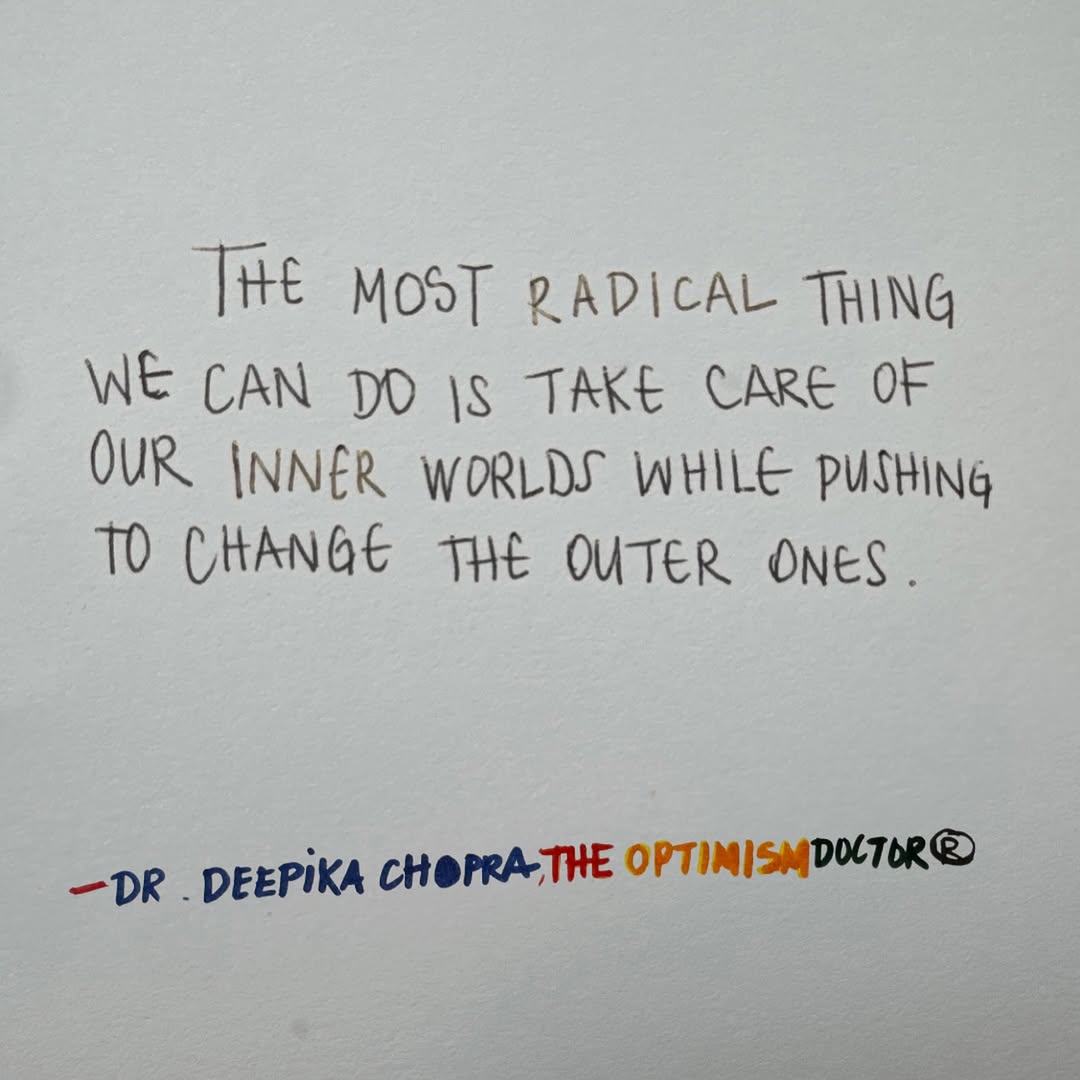 THE MOST RADICAL THING
WE CAN DO IS TAKE CARE OF
OUR INNER WORLDS WHILE PUSHING
TO CHANGE THE OUTER ONES.
—DR. DEEPIKA CHOPRA, THE OPTIMISM DOCTOR®